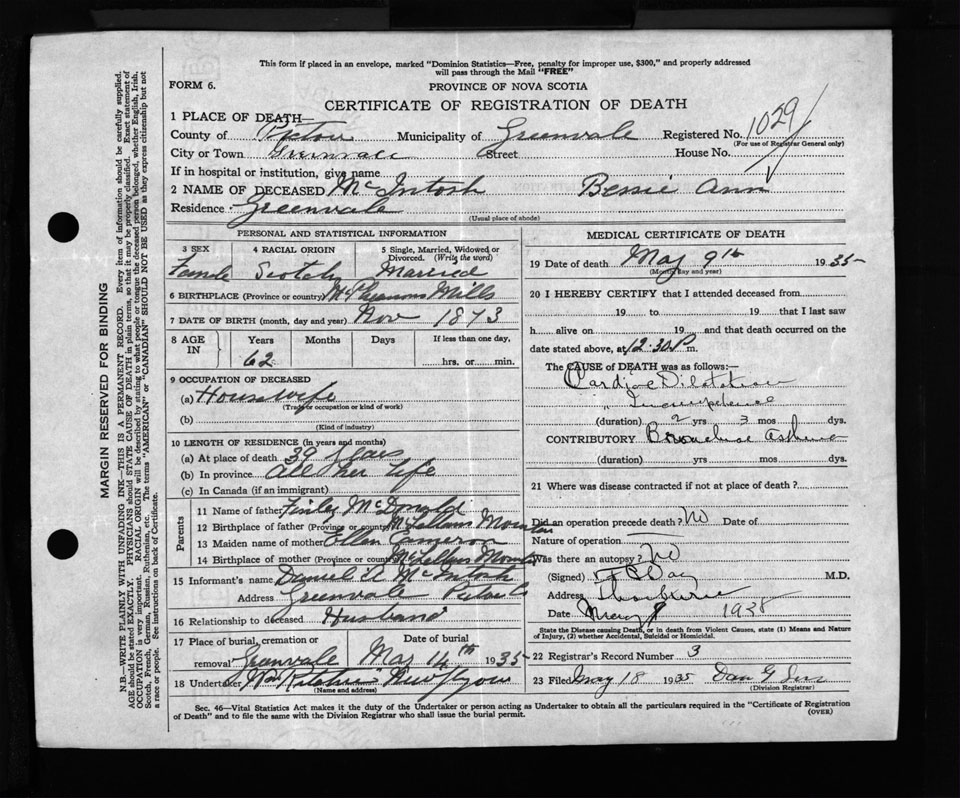 This form if placed in an envelope, marked "Dominion Statistics—Free, penalty for improper use, $300," and properly addressed
will pass through the Mail "FREE"
FORM 6.
PROVINCE OF NOVA SCOTIA
CERTIFICATE OF REGISTRATION OF DEATH
1 PLACE OF DEATH—
County of Pictou Municipality of Greenvale Registered No. 1029
(For use of Registrar General only)
City or Town Greenvale Street House No.
If in hospital or institution, give name
2 NAME OF DECEASED McIntosh Bessie Ann
Residence Greenvale
(Usual place of abode)
PERSONAL AND STATISTICAL INFORMATION
3 SEX 4 RACIAL ORIGIN 5 Single, Married, Widowed or
Divorced. (Write the word)
Female Scotch Married
6 BIRTHPLACE (Province or country) McPhersons Mills
7 DATE OF BIRTH (month, day and year) Nov 1873
8 AGE IN Years Months Days If less than one day,
62 hrs. or min.
9 OCCUPATION OF DECEASED
(a) Housewife
(Trade or occupation or kind of work)
(b)
(Kind of industry)
10 LENGTH OF RESIDENCE (in years and months)
(a) At place of death 39 years
(b) In province All her life
(c) In Canada (if an immigrant)
Parents
11 Name of father Finlay McDonald
12 Birthplace of father (Province or country) McLellans Mountain
13 Maiden name of mother Ellen Cameron
14 Birthplace of mother (Province or country) McLellans Mountain
15 Informant's name Daniel A McIntosh
Address Greenvale Pictou Co
16 Relationship to deceased Husband
17 Place of burial, cremation or Date of burial
removal Greenvale May 14th 1935
18 Undertaker New Glasgow
(Name and address)
MEDICAL CERTIFICATE OF DEATH
19 Date of death May 9th 1935
(Month, day and year)
20 I HEREBY CERTIFY that I attended deceased from
19 to 19 that I last saw
h alive on 19 and that death occurred on
date stated above, at 12.30 P m.
The CAUSE of DEATH was as follows:—
Cardiac Dilatation
" Incompetence
(duration) 2 yrs 3 mos dys.
CONTRIBUTORY Bronchial Asthma
(duration) yrs mos dys.
21 Where was disease contracted if not at place of death?
Did an operation precede death? No Date of
Nature of operation
Was there an autopsy? No
(Signed) Day M.D.
Address Thorburn
Date May 9 1935
State the Disease causing Death, or in death from Violent Causes, state (1) Means and Nature
of Injury, (2) whether Accidental, Suicidal or Homicidal.
22 Registrar's Record Number 3
23 Filed May 18 1935 Dan G
(Division Registrar)
Sec. 46—Vital Statistics Act makes it the duty of the Undertaker or person acting as Undertaker to obtain all the particulars required in the "Certificate of Registration
of Death" and to file the same with the Division Registrar who shall issue the burial permit.
(OVER)
MARGIN RESERVED FOR BINDING
N.B.—WRITE PLAINLY WITH UNFADING INK—THIS IS A PERMANENT RECORD. Every item of information should be carefully supplied.
AGE should be stated EXACTLY. PHYSICIANS should STATE CAUSE OF DEATH in plain terms, so that it may be properly classified. Exact statement of
OCCUPATION is very important. RACIAL ORIGIN will be described by stating to what people or tongue the deceased person belonged, whether English, Irish,
Scotch, French, German, Russian, Ruthenian, etc. The terms "AMERICAN" or "CANADIAN" SHOULD NOT BE USED as they express citizenship but not
a race or people. See instructions on back of Certificate.